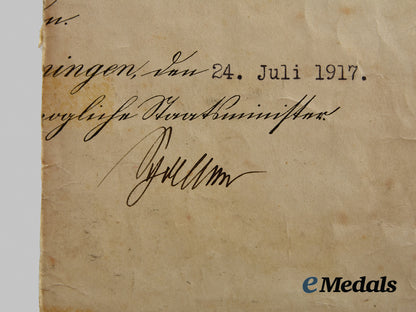 en.
ningen, den 24. Juli 1917.
ogliche Staatsminister
eMedals